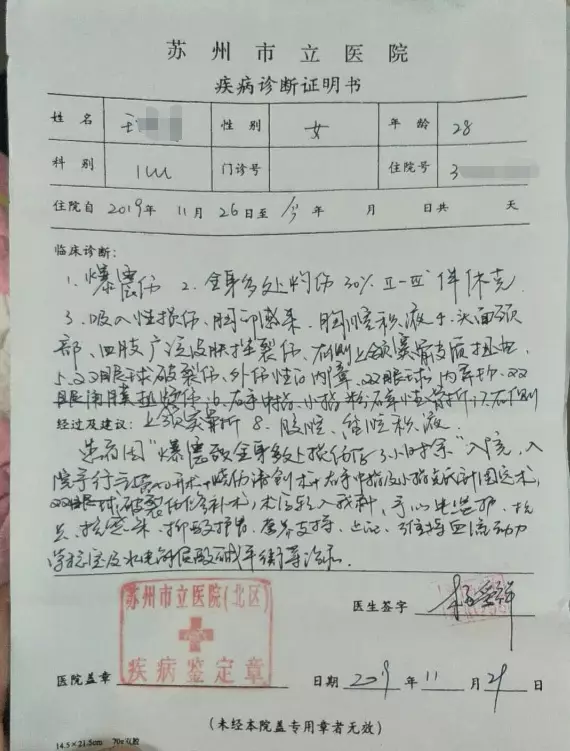 苏州市立医院
疾病诊断证明书
姓名 王 性别 女 年龄 28
科别 ICU 门诊号 住院号 3
住院自 2019年 11月 26日至 今 年 月 日共 天
临床诊断:
1. 爆震伤 2. 全身多处灼伤 30% II-III° 伴休克
3. 吸入性损伤、肺部感染、胸腔积液 4. 头面颈
部、四肢广泛皮肤挫裂伤、右侧上颌窦骨皮质扭曲
5. 双眼球破裂伤、外伤性白内障、双眼球内异物、双
眼 挫伤 6. 右手中指、小指粉碎性骨折 7. 右侧
经过及建议: 上颌窦骨折 8. 腹腔、盆腔积液.
患者因"爆震致全身多处损伤后3小时余"入院, 入
院予行 切开术+烧伤清创术+右手中指及小指 术,
双眼球破裂伤修补术, 术后转入我科, 予心电监护、抗
炎、抗感染、抑酸护胃、营养支持、 、 血流动力
学稳定及水电解质酸碱平衡等治疗.
医生签字
苏州市立医院(北区)
疾病鉴定章
医院盖章 日期 2019 年 11 月 29 日
(未经本院盖专用章者无效)
14.5×21.5cm 70g双胶